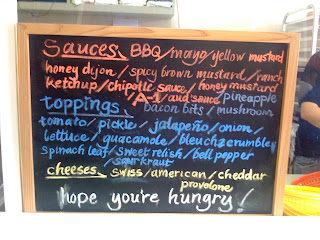 Sauces BBQ/mayo/yellow mustard
honey dijon/spicy brown mustard/ranch
ketchup/chipotle sauce/honey mustard
/A-1/aud sauce/pineapple
toppings bacon bits/mushroom
tomato/pickle/jalapeño/onion/
lettuce/guacamole/bleuchzcrumble
spinach leaf/sweet relish/bell pepper
sauer kraut
cheeses swiss/american/cheddar
provolone
hope you're hungry!